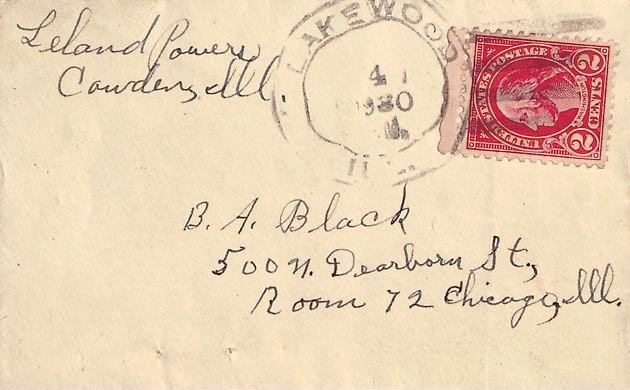 Leland Powers
Cowden, Ill.
LAKEWOOD
4
1930
ILL.
UNITED STATES POSTAGE
2 CENTS 2
B. A. Black
500 N. Dearborn St.,
Room 72 Chicago, Ill.